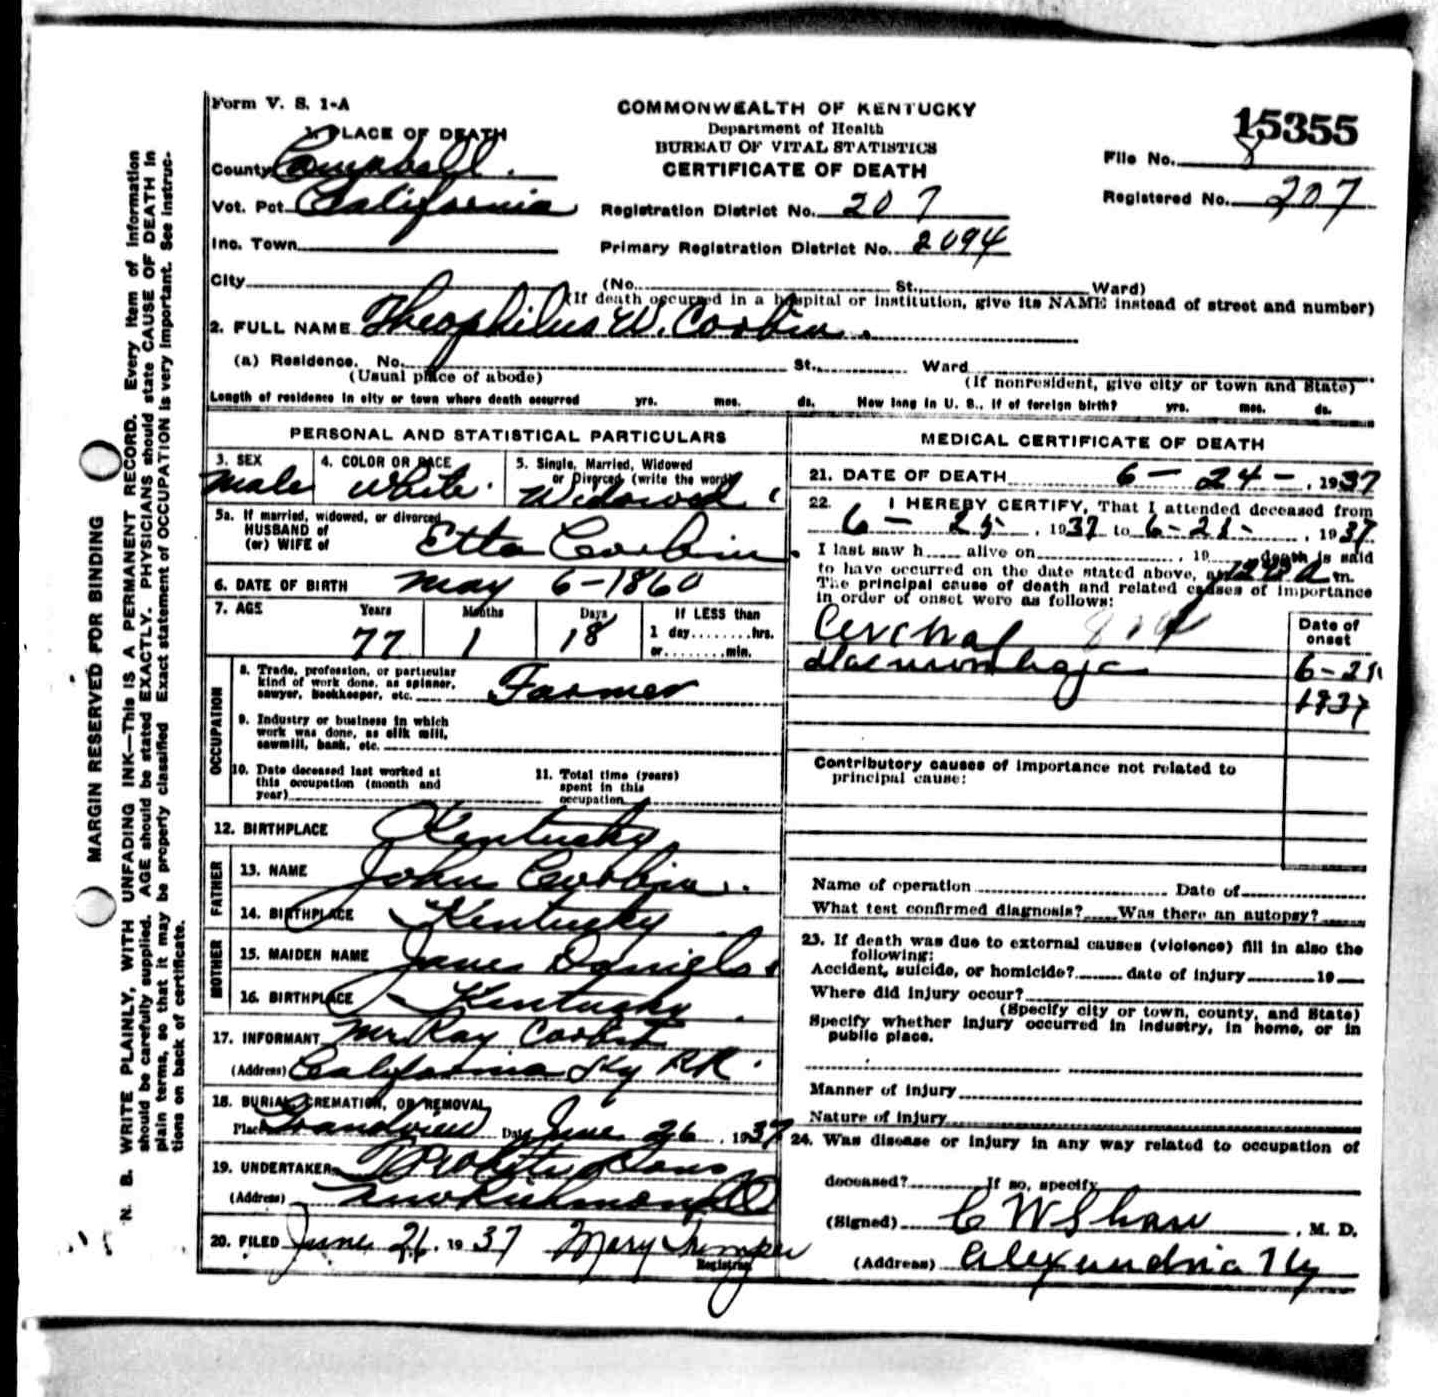 Form V. S. 1-A
COMMONWEALTH OF KENTUCKY
Department of Health
BUREAU OF VITAL STATISTICS
CERTIFICATE OF DEATH
15355
File No. 8
Registered No. 207
1. PLACE OF DEATH
County Campbell.
Vot. Pct. California
Registration District No. 207
Inc. Town
Primary Registration District No. 2094
City (No. St. Ward)
(If death occurred in a hospital or institution, give its NAME instead of street and number)
2. FULL NAME Theophilus W. Corbin.
(a) Residence. No. St. Ward
(Usual place of abode) (If nonresident, give city or town and State)
Length of residence in city or town where death occurred yrs. mos. ds. How long in U. S., if of foreign birth? yrs. mos. ds.
PERSONAL AND STATISTICAL PARTICULARS
3. SEX 4. COLOR OR RACE 5. Single, Married, Widowed
or Divorced (write the word)
Male White Widowed
5a. If married, widowed, or divorced
HUSBAND of
(or) WIFE of Etta Corbin
6. DATE OF BIRTH May 6-1860
7. AGE Years Months Days If LESS than
77 1 18 1 day........hrs.
or........min.
OCCUPATION
8. Trade, profession, or particular
kind of work done, as spinner,
sawyer, bookkeeper, etc. Farmer
9. Industry or business in which
work was done, as silk mill,
sawmill, bank, etc.
10. Date deceased last worked at
this occupation (month and
year)
11. Total time (years)
spent in this
occupation
12. BIRTHPLACE Kentucky
FATHER
13. NAME John Corbin.
14. BIRTHPLACE Kentucky
MOTHER
15. MAIDEN NAME Jane Daniels
16. BIRTHPLACE Kentucky
17. INFORMANT Mr Ray Corbin
(Address) California Ky RR.
18. BURIAL, CREMATION, OR REMOVAL
Place Grandview Date June 26, 1937
19. UNDERTAKER White Sons
(Address) New Richmond O
20. FILED June 26, 1937 Mary
Registrar
MEDICAL CERTIFICATE OF DEATH
21. DATE OF DEATH 6-24-, 1937
22. I HEREBY CERTIFY, That I attended deceased from
6-25, 1937 to 6-25-, 1937
I last saw h alive on , 19 death is said
to have occurred on the date stated above, at m.
The principal cause of death and related causes of importance
in order of onset were as follows:
Date of
onset
Cerebral
Haemorrhage
1937
Contributory causes of importance not related to
principal cause:
Name of operation Date of
What test confirmed diagnosis? Was there an autopsy?
23. If death was due to external causes (violence) fill in also the
following:
Accident, suicide, or homicide? date of injury 19
Where did injury occur?
(Specify city or town, county, and State)
Specify whether injury occurred in industry, in home, or in
public place.
Manner of injury
Nature of injury
24. Was disease or injury in any way related to occupation of
deceased? If so, specify
(Signed) C W Shaw, M. D.
(Address) Alexandria Ky
MARGIN RESERVED FOR BINDING
N. B. WRITE PLAINLY, WITH UNFADING INK—This IS A PERMANENT RECORD. Every item of information
should be carefully supplied. AGE should be stated EXACTLY. PHYSICIANS should state CAUSE OF DEATH in
plain terms, so that it may be properly classified. Exact statement of OCCUPATION is very important. See instruc-
tions on back of certificate.